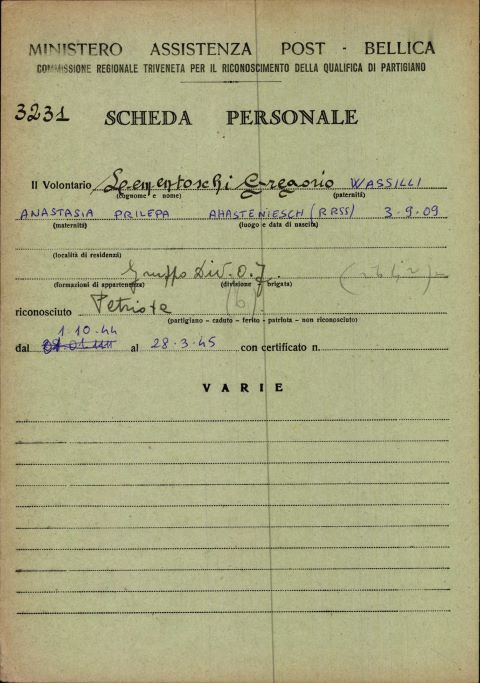 MINISTERO ASSISTENZA POST - BELLICA
COMMISSIONE REGIONALE TRIVENETA PER IL RICONOSCIMENTO DELLA QUALIFICA DI PARTIGIANO
3231 SCHEDA PERSONALE
Il Volontario Gregorio WASSILLI
(cognome e nome) (paternità)
ANASTASIA PRILEPA AHASTENIESCH (RRSS) 3-9-09
(maternità) (luogo e data di nascita)
(località di residenza)
Gruppo Div. O.F.
(formazioni di appartenenza) (divisione brigata)
riconosciuto Patriota (b)
(partigiano - caduto - ferito - patriota - non riconosciuto)
1.10.44
dal al 28.3.45 con certificato n.
VARIE